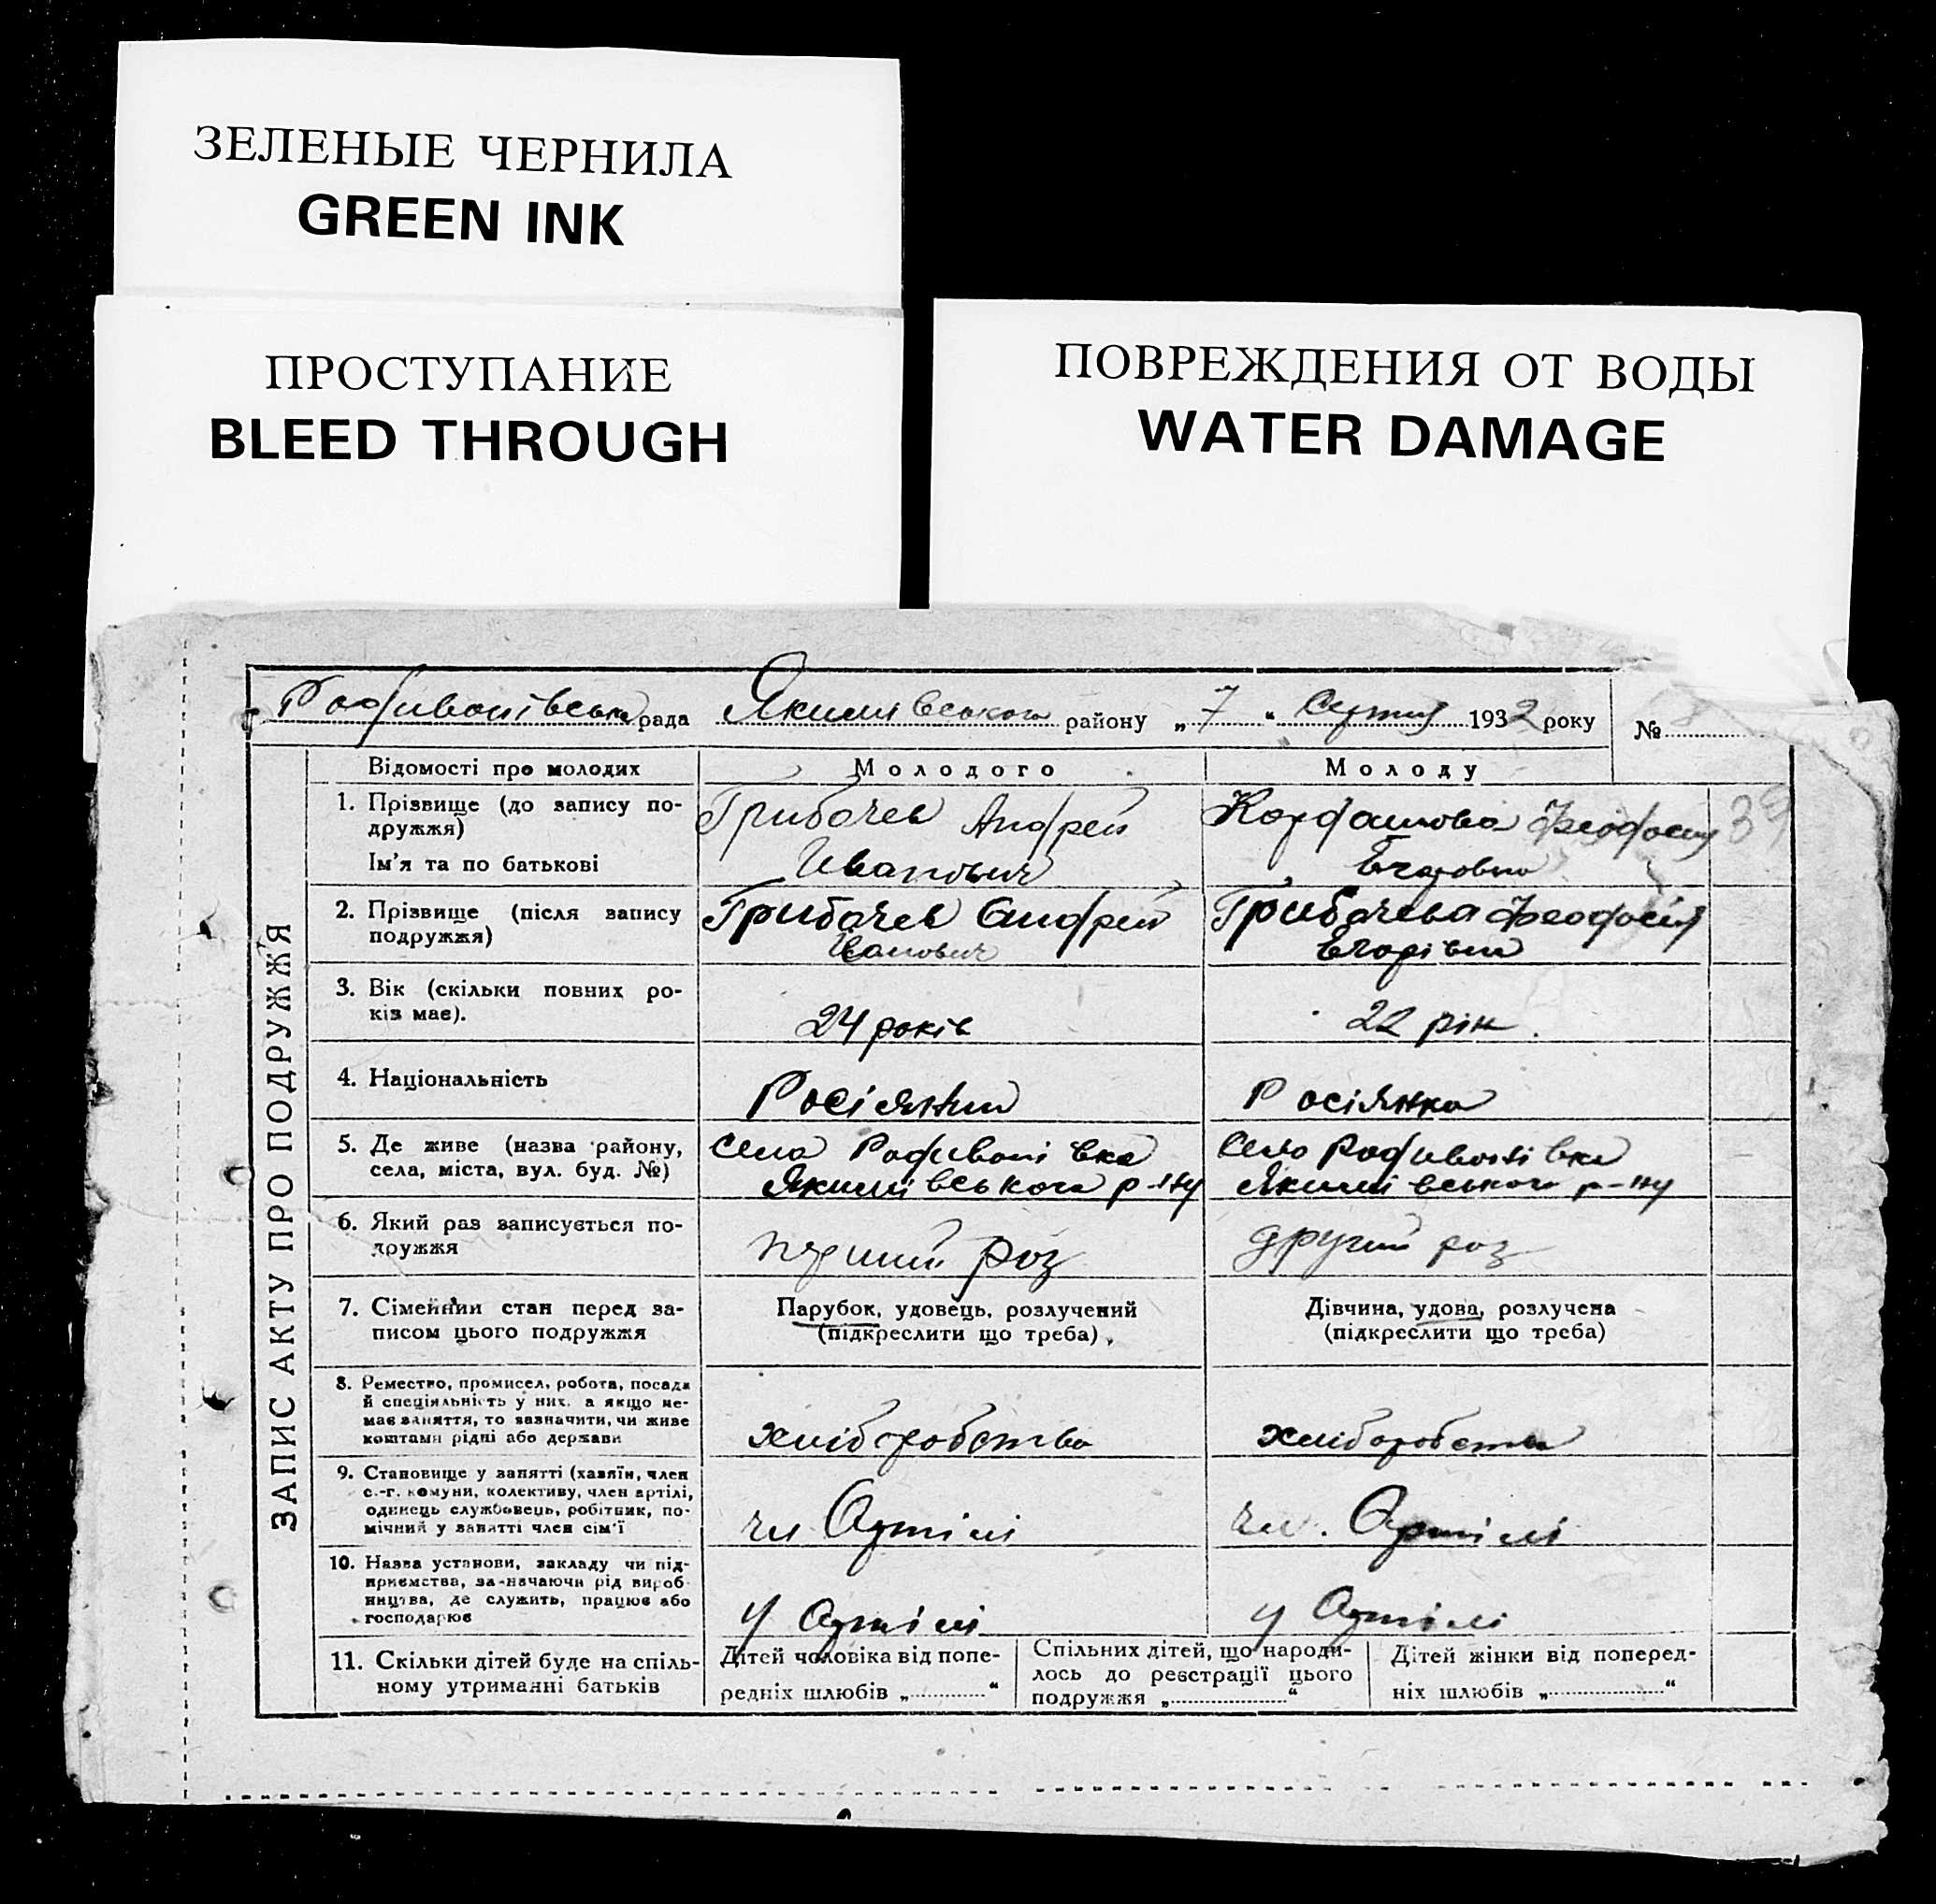 ЗЕЛЕНЫЕ ЧЕРНИЛА
GREEN INK
ПРОСТУПАНИЕ
BLEED THROUGH
ПОВРЕЖДЕНИЯ ОТ ВОДЫ
WATER DAMAGE
Радивонівська рада Якимівського району „7“ 1932 року №
ЗАПИС АКТУ ПРО ПОДРУЖЖЯ
Відомості про молодих Молодого Молоду
1. Прізвище (до запису по-
дружжя)
Ім'я та по батькові
Грибачев Андрей
Иванович
Кардашова Феодосия
Егоровна
39
2. Прізвище (після запису
подружжя)
Грибачев Андрей
Иванович
Грибачева Феодосія
Егорівна
3. Вік (скільки повних ро-
ків має).
24 років
22 рік.
4. Національність
Росіянин
Росіянка
5. Де живе (назва району,
села, міста, вул. буд. №)
Село Радивонівка
Якимівського р-ну
Село Радивонівка
Якимівського р-ну
6. Який раз записується по-
дружжя
перший раз
другий раз
7. Сімейний стан перед за-
писом цього подружжя
Парубок, удовець, розлучений
(підкреслити що треба)
Дівчина, удова, розлучена
(підкреслити що треба)
8. Ремество, промисел, робота, посада
й спеціяльність у них, а якщо не-
має заняття, то зазначити, чи живе
коштами рідні або держави
хліборобство
хліборобство
9. Становище у занятті (хазяїн, член
с.-г. комуни, колективу, член артілі,
одинець службовець, робітник, по-
мічний у занятті член сім'ї
чл Артілі
чл. Артілі
10. Назва установи, закладу чи під-
приємства, зазначаючи рід вироб-
ництва, де служить, працює або
господарює
у Артілі
у Артілі
11. Скільки дітей буде на спіль-
ному утриманні батьків
Дітей чоловіка від попе-
редніх шлюбів „ “
Спільних дітей, що народи-
лось до реєстрації цього
подружжя „ “
Дітей жінки від поперед-
ніх шлюбів „ “